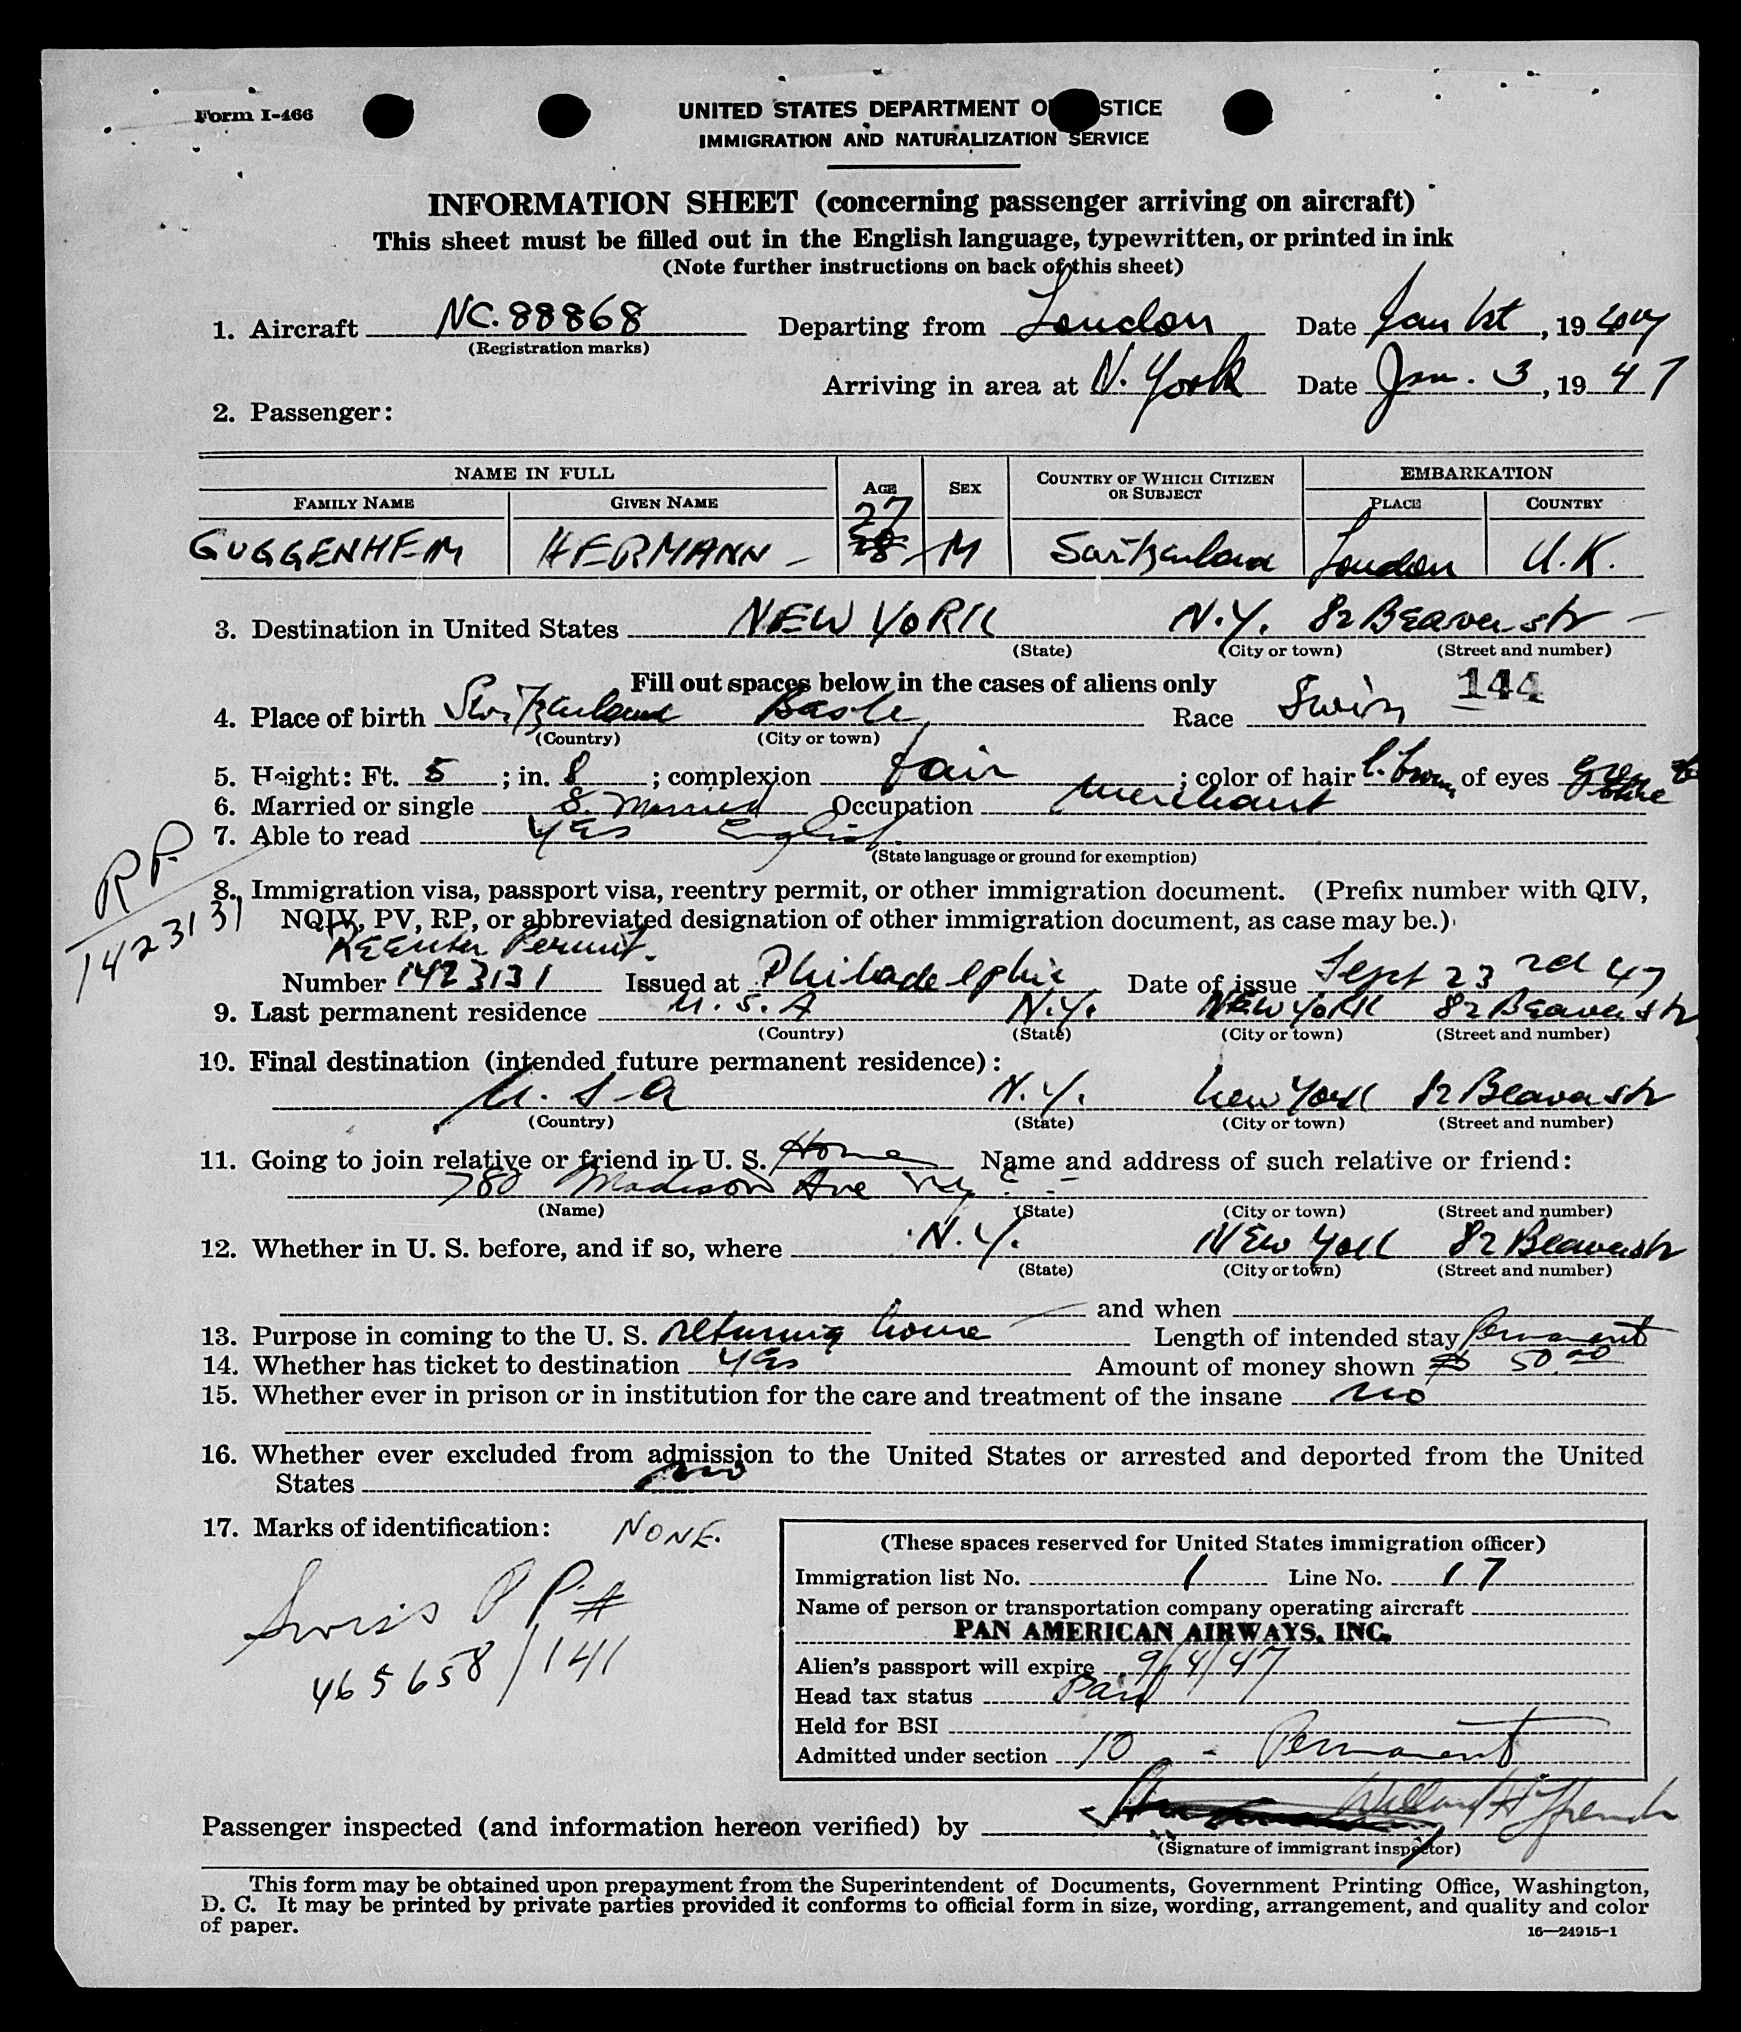 Form I-466
UNITED STATES DEPARTMENT O STICE
IMMIGRATION AND NATURALIZATION SERVICE
INFORMATION SHEET (concerning passenger arriving on aircraft)
This sheet must be filled out in the English language, typewritten, or printed in ink
(Note further instructions on back of this sheet)
1. Aircraft NC.88868 Departing from London Date Jan 1st, 19
(Registration marks)
Arriving in area at N. York Date Jan. 3, 19 47
2. Passenger:
NAME IN FULL AGE SEX COUNTRY OF WHICH CITIZEN OR SUBJECT EMBARKATION
FAMILY NAME GIVEN NAME PLACE COUNTRY
27
GUGGENHEIM HERMANN - 28 M Switzerland London U.K.
3. Destination in United States NEW YORK N.Y. 82 Beaver str -
(State) (City or town) (Street and number)
Fill out spaces below in the cases of aliens only 144
4. Place of birth Switzerland Basle Race Swiss
(Country) (City or town)
5. Height: Ft. 5; in. 8; complexion fair; color of hair l. brown of eyes
6. Married or single S. Married Occupation merchant
7. Able to read yes English
(State language or ground for exemption)
RP
1423131
8. Immigration visa, passport visa, reentry permit, or other immigration document. (Prefix number with QIV,
NQIV, PV, RP, or abbreviated designation of other immigration document, as case may be.)
REEnter Permit.
Number 1423131 Issued at Philadelphia Date of issue Sept 23rd 47
9. Last permanent residence U.S.A N.Y. NEW YORK 82 Beaver str
(Country) (State) (City or town) (Street and number)
10. Final destination (intended future permanent residence):
U.S.A N.Y. New York 82 Beaver str
(Country) (State) (City or town) (Street and number)
11. Going to join relative or friend in U. S. Home Name and address of such relative or friend:
780 Madison Ave NYC -
(Name) (State) (City or town) (Street and number)
12. Whether in U. S. before, and if so, where N.Y. NEW York 82 Beaver str
(State) (City or town) (Street and number)
and when
13. Purpose in coming to the U. S. returning home Length of intended stay Permanent
14. Whether has ticket to destination yes Amount of money shown $ 50.00
15. Whether ever in prison or in institution for the care and treatment of the insane no
16. Whether ever excluded from admission to the United States or arrested and deported from the United
States no
17. Marks of identification: NONE.
Swiss P P #
465658/141
(These spaces reserved for United States immigration officer)
Immigration list No. 1 Line No. 17
Name of person or transportation company operating aircraft
PAN AMERICAN AIRWAYS, INC.
Alien's passport will expire 9/4/47
Head tax status Paid
Held for BSI
Admitted under section 10 - Permanent
Passenger inspected (and information hereon verified) by
(Signature of immigrant inspector)
This form may be obtained upon prepayment from the Superintendent of Documents, Government Printing Office, Washington,
D. C. It may be printed by private parties provided it conforms to official form in size, wording, arrangement, and quality and color
of paper.
16—24915-1